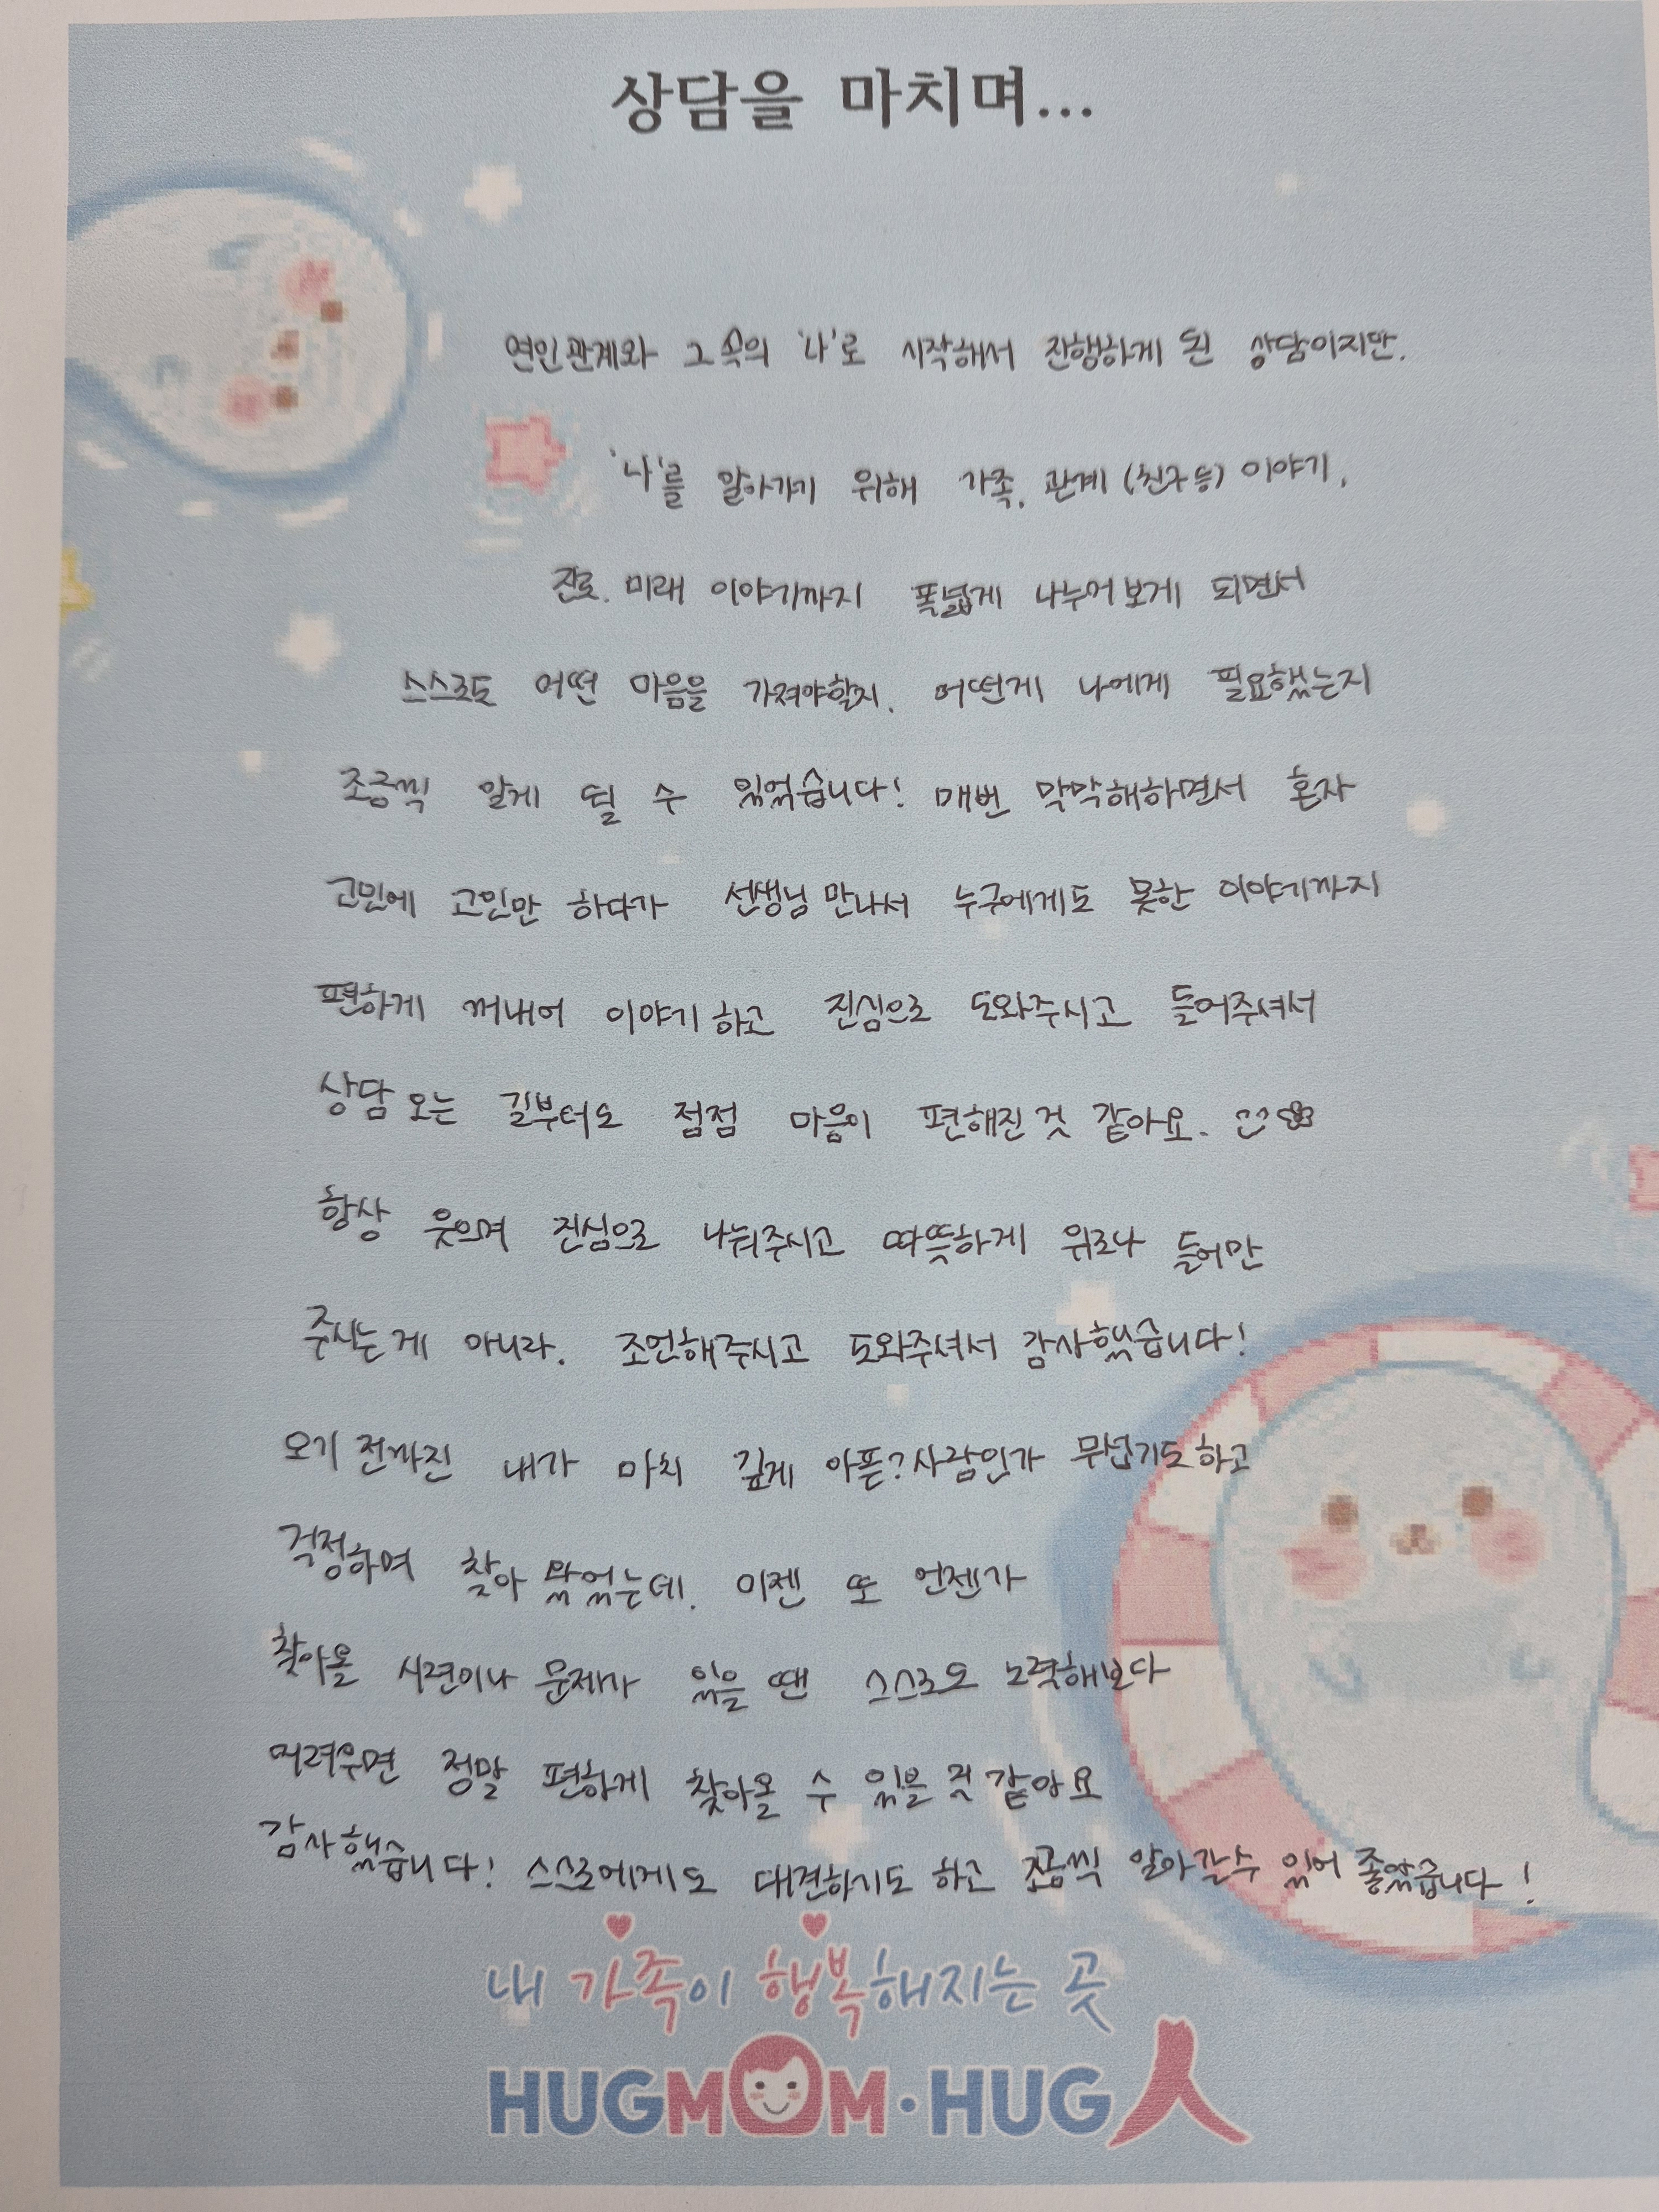 상담을 마치며...
연인관계와 그 속의 '나'로 시작해서 진행하게 된 상담이지만.
'나'를 알아가기 위해 가족, 관계 (친구 등) 이야기,
진로. 미래 이야기까지 폭넓게 나누어보게 되면서
스스로도 어떤 마음을 가져야할지, 어떤게 나에게 필요했는지
조금씩 알게 될 수 있었습니다! 매번 막막해하면서 혼자
고민에 고민만 하다가 선생님 만나서 누구에게도 못한 이야기까지
편하게 꺼내어 이야기하고 진심으로 도와주시고 들어주셔서
상담 오는 길부터도 점점 마음이 편해진 것 같아요.
항상 웃으며 진심으로 나눠주시고 따뜻하게 위로나 들어만
주시는게 아니라. 조언해주시고 도와주셔서 감사했습니다!
오기 전까진 내가 마치 깊게 아픈?사람인가 무섭기도하고
걱정하며 찾아 왔었는데. 이젠 또 언젠가
찾아올 시련이나 문제가 있을 땐 스스로도 노력해보다
어려우면 정말 편하게 찾아올 수 있을 것 같아요
감사했습니다! 스스로에게도 대견하기도 하고 조금씩 알아갈수 있어 좋았습니다!
내 가족이 행복해지는 곳
HUGMOM·HUG人